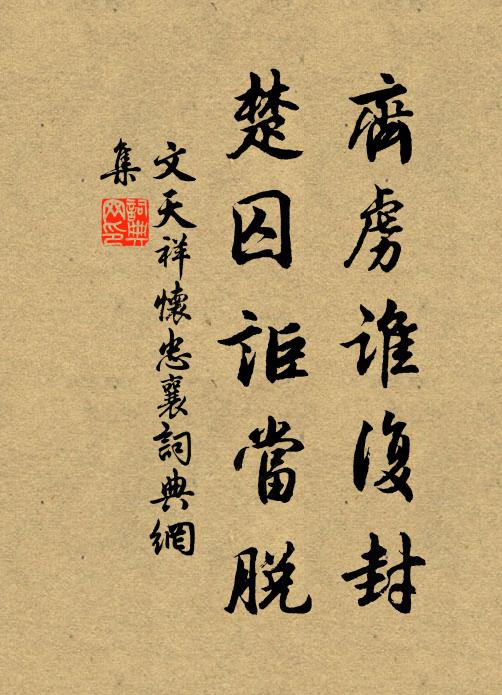 齊虜誰復封
楚囚詎當脫
文天祥懷忠襄詞典網
集
詞典
网印